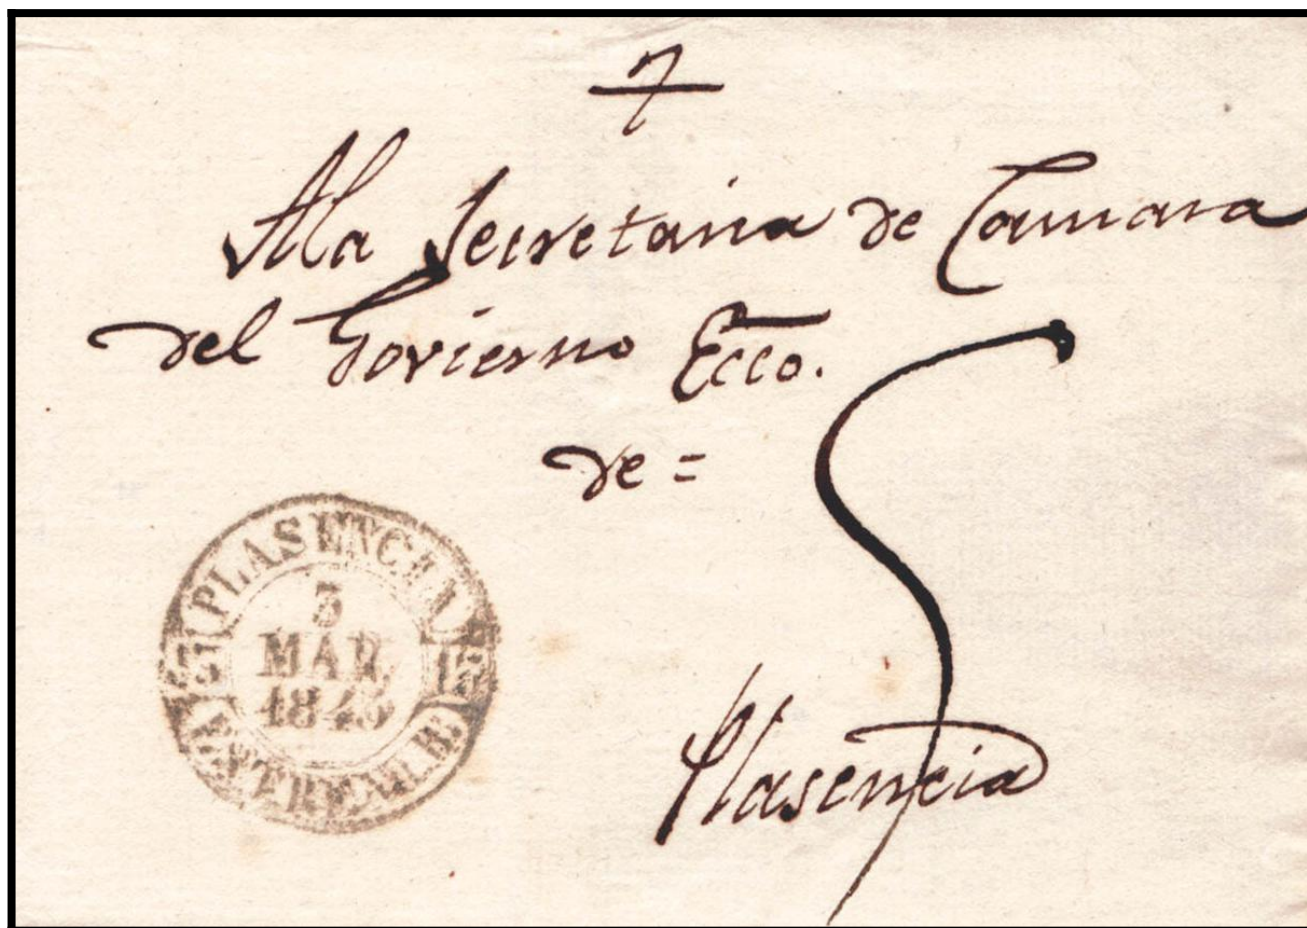 A la Secretaria de Camara
del Govierno Ecco.
de =
Plasencia
PLASENCIA
3
MAR
184